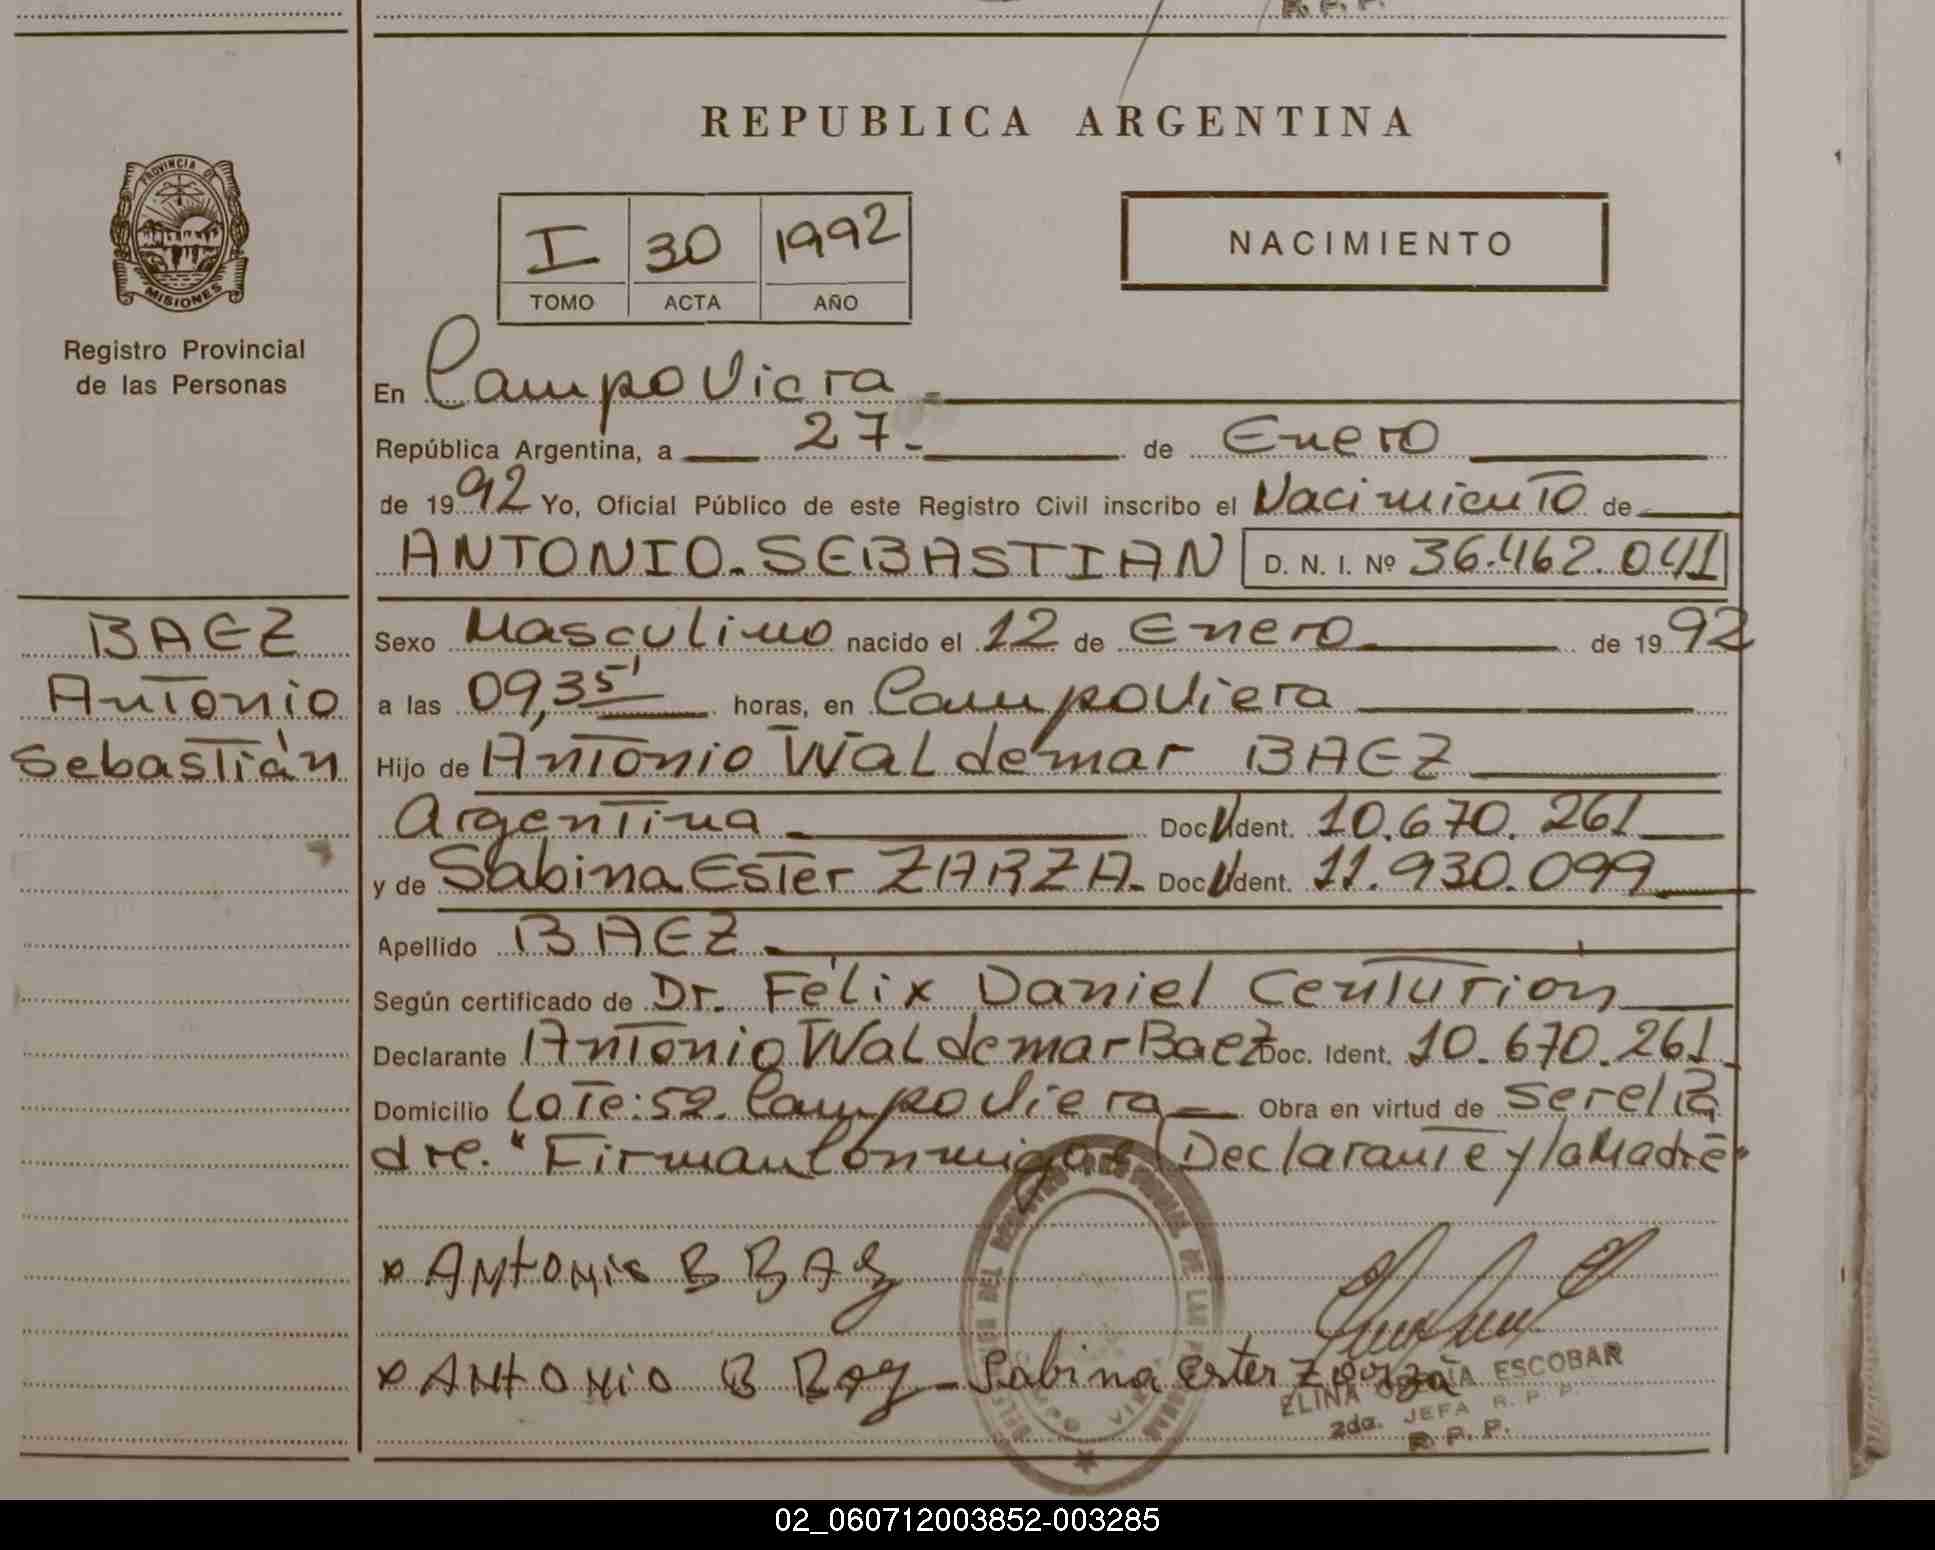 R. P. P.
REPUBLICA ARGENTINA
PROVINCIA DE
MISIONES
Registro Provincial
de las Personas
I 30 1992
TOMO ACTA AÑO
NACIMIENTO
En Campo Viera
República Argentina, a 27- de Enero
de 1992 Yo, Oficial Público de este Registro Civil inscribo el Nacimiento de
ANTONIO. SEBASTIAN D. N. I. Nº 36.462.041
BAEZ
Antonio
Sebastián
Sexo Masculino nacido el 12 de Enero de 1992
a las 09,35' horas, en Campo Viera
Hijo de Antonio Waldemar BAEZ
Argentina Doc. Ident. 10.670.261
y de Sabina Ester ZARZA. Doc. Ident. 11.930.099
Apellido BAEZ
Según certificado de Dr. Félix Daniel Centurion
Declarante Antonio Waldemar Baez Doc. Ident. 10.670.261
Domicilio Lote: 52. Campo Viera Obra en virtud de Ser el Pa
dre. "Firman Conmigo el Declarante y la Madre"
x Antonio B BAez
x Antonio B Baez - Sabina Ester Zarza
ELINA ESCOBAR
2da. JEFA R. P. P.
R. P. P.
02_060712003852-003285